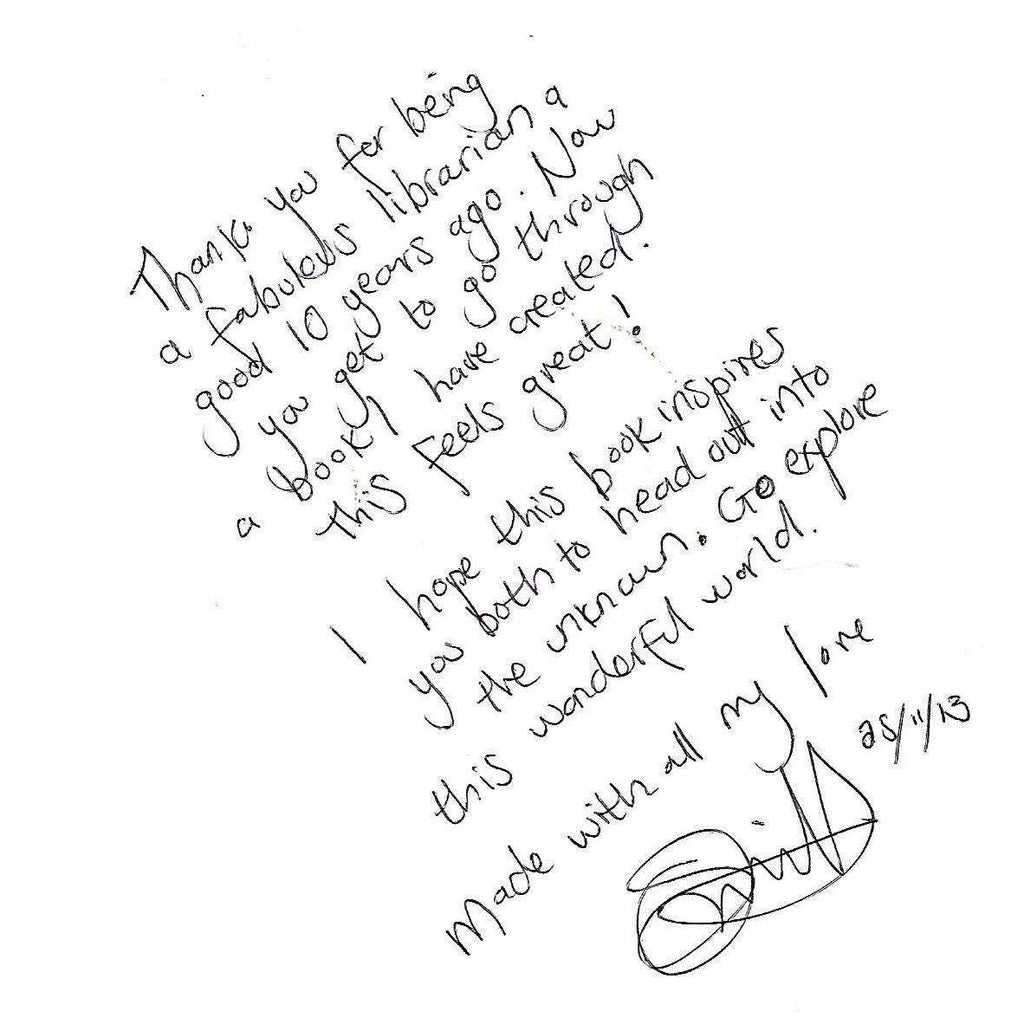 Thank you for being
a fabulous librarian a
good 10 years ago. Now
you get to go through
a book I have created.
This feels great!
I hope this book inspires
you both to head out into
the unknown. Go explore
this wonderful world.
Made with all my love
25/11/13